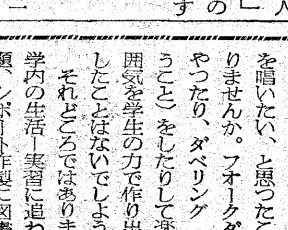 人
「
の
す
ニ
を唱いたい、と思つたこ
りませんか。フオークダ
やつたり、ダベリング
うこと）をしたりして楽
囲気を学生の力で作り出
したことはないでしよう
それどころではありま
学内の生活ー実習に追わ
願、レポート作製に図書